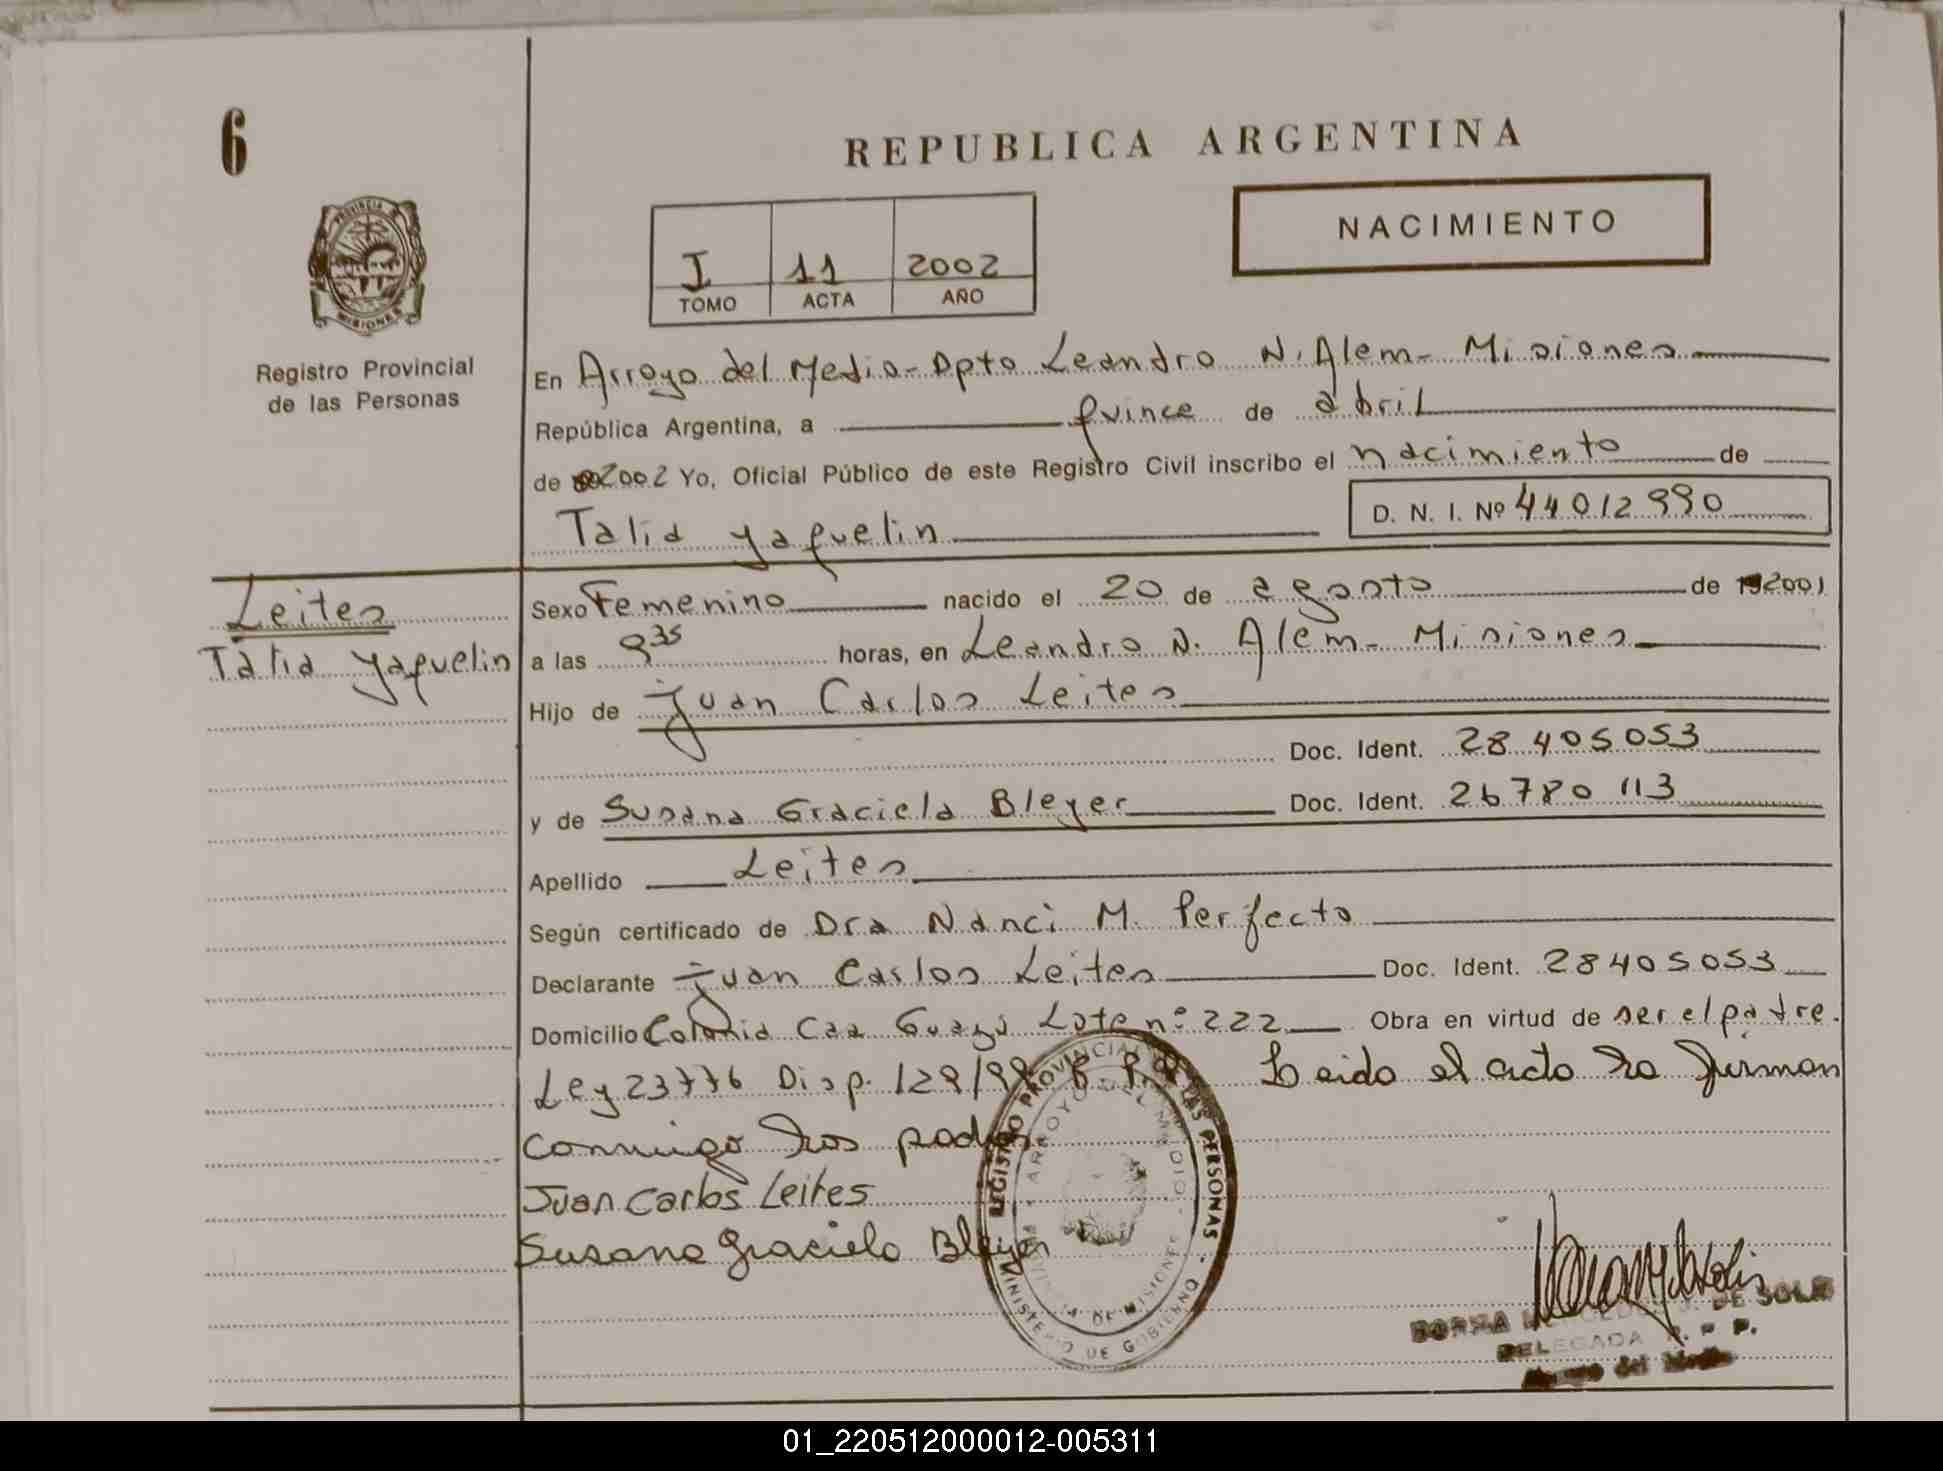 6
REPUBLICA ARGENTINA
PROVINCIA
MISIONES
Registro Provincial
de las Personas
I 11 2002
TOMO ACTA AÑO
NACIMIENTO
En Arroyo del Medio - Dpto Leandro N. Alem - Misiones
República Argentina, a quince de abril
de 2002 Yo, Oficial Público de este Registro Civil inscribo el nacimiento de
Talia Yaquelin D. N. I. Nº 44012990
Leites
Talia Yaquelin
Sexo Femenino nacido el 20 de agosto de 2001
a las 9 35 horas, en Leandro N. Alem - Misiones
Hijo de Juan Carlos Leites
Doc. Ident. 28 405053
y de Susana Graciela Bleyer Doc. Ident. 26780 113
Apellido Leites
Según certificado de Dra Nanci M. Perfecto
Declarante Juan Carlos Leites Doc. Ident. 28405053
Domicilio Colonia Caa Guazú Lote nº 222 Obra en virtud de ser el padre.
Ley 23776 Disp. 129/99 Leido el acta la firman
conmigo los padres.
Juan Carlos Leites
Susana Graciela Bleyer
REGISTRO PROVINCIAL DE LAS PERSONAS
ARROYO DEL MEDIO
PROVINCIA DE MISIONES
MINISTERIO DE GOBIERNO
DE SOLIS
DELEGADA R. P. P.
Arroyo del Medio
01_220512000012-005311